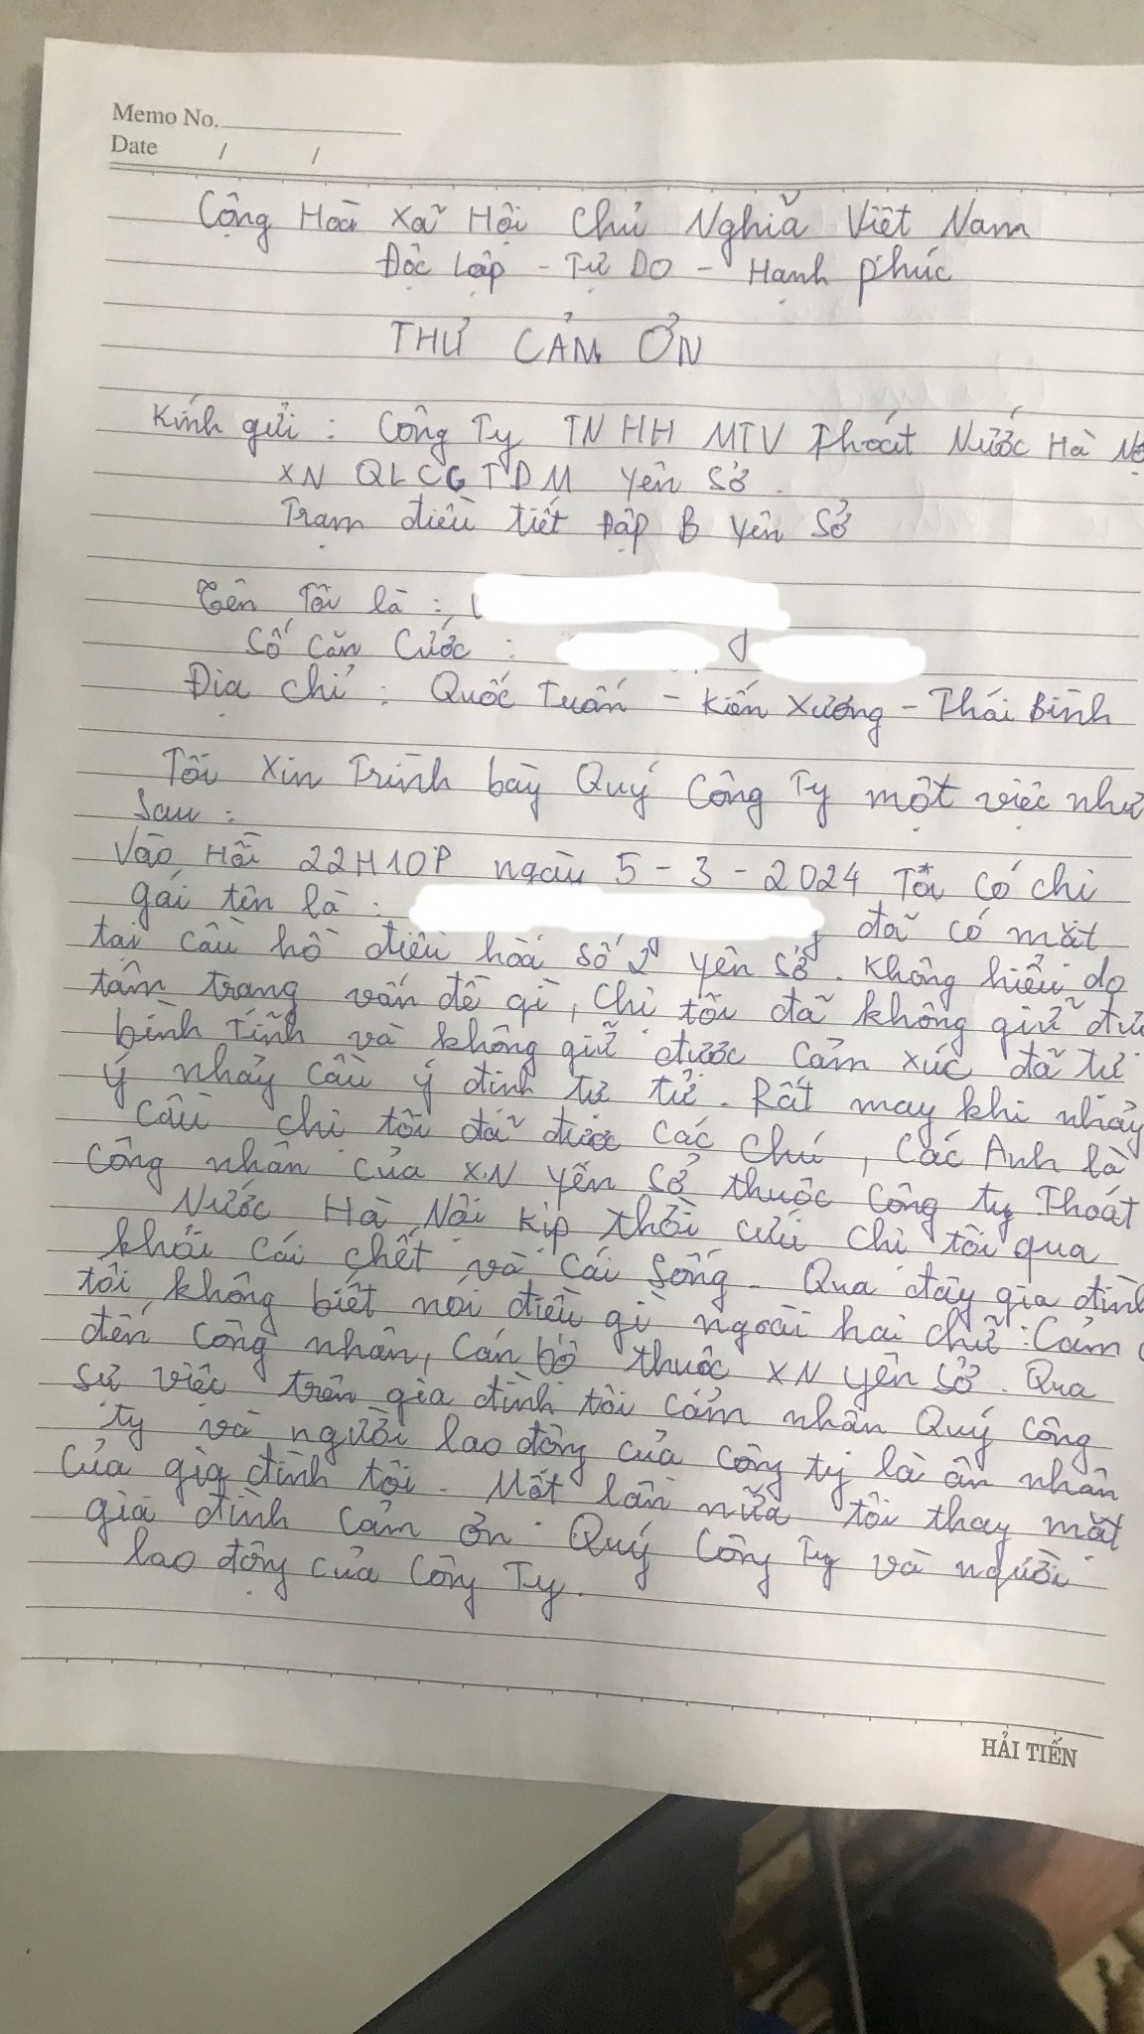 Memo No.
Date / /
Cộng Hoà Xã Hội Chủ Nghĩa Việt Nam
Độc Lập - Tự Do - Hạnh phúc
THƯ CẢM ƠN
Kính gửi : Công Ty TNHH MTV Thoát Nước Hà
XN QLCGTĐM Yên Sở.
Trạm điều tiết Đập B Yên Sở
Tên Tôi là :
Số Căn Cước :
Địa chỉ : Quốc Tuấn - Kiến Xương - Thái Bình
Tôi Xin Trình bày Quý Công Ty một việc như
Sau :
Vào Hồi 22H10P ngày 5-3-2024 Tôi có chị
gái tên là : đã có mặt
tại cầu hồ điều hoà số 2 Yên Sở. Không hiểu do
tâm trạng vấn đề gì, chị tôi đã không giữ
bình tĩnh và không giữ được cảm xúc đã tự
ý nhảy cầu ý định tự tử. Rất may khi nhảy
cầu chị tôi đã được các chú, các Anh là
công nhân của X.N Yên Sở thuộc công ty Thoát
Nước Hà Nội kịp thời cứu chị tôi qua
khỏi cái chết và cái sống - Qua đây gia đình
tôi không biết nói điều gì ngoài hai chữ : Cảm
đến công nhân, cán bộ thuộc XN Yên Sở. Qua
sự việc trên gia đình tôi cảm nhận Quý Công
ty và người lao động của công ty là ân nhân
của gia đình tôi. Một lần nữa tôi thay mặt
gia đình cảm ơn Quý Công Ty và người
lao động của Công Ty.
HẢI TIẾN